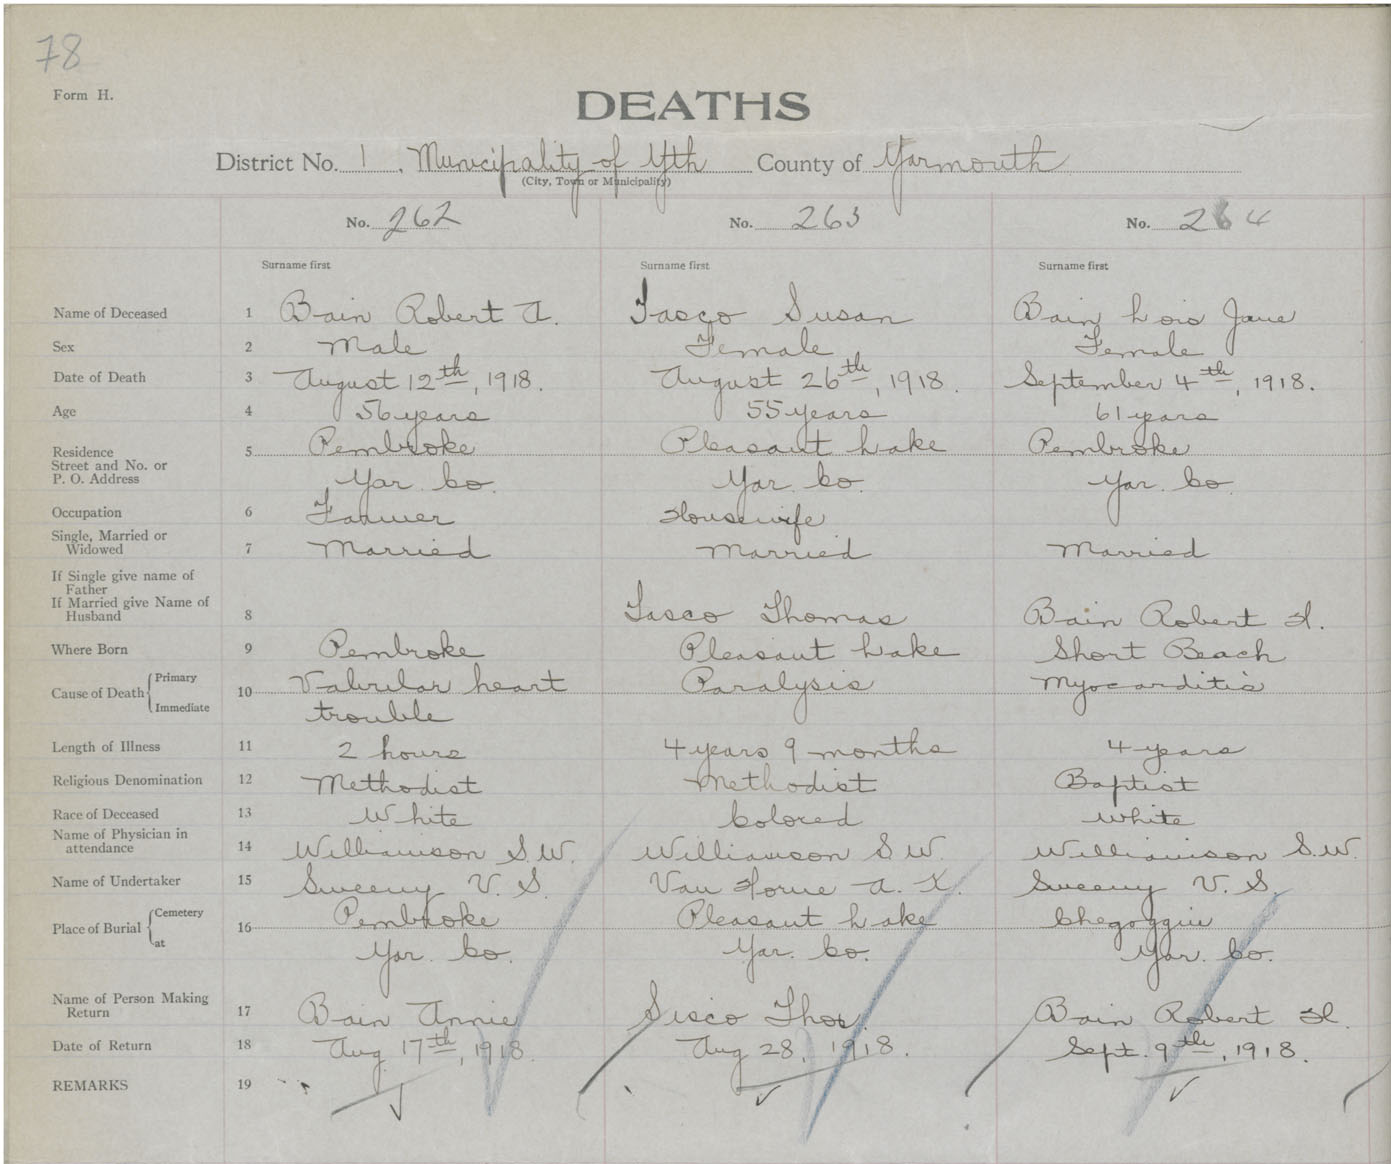 78
Form H.
DEATHS
District No. 1. Municipality of Yth County of Yarmouth
(City, Town or Municipality)
No. 262 No. 263 No. 264
Surname first Surname first Surname first
Name of Deceased 1 Bain Robert A. Tasco Susan Bain Lois Jane
Sex 2 Male Female Female
Date of Death 3 August 12th, 1918. August 26th, 1918. September 4th, 1918.
Age 4 56 years 55 years 61 years
Residence 5 Pembroke Pleasant Lake Pembroke
Street and No. or
P. O. Address Yar. Co. Yar. Co. Yar. Co.
Occupation 6 Farmer Housewife
Single, Married or
Widowed 7 Married Married Married
If Single give name of
Father
If Married give Name of
Husband 8 Tasco Thomas Bain Robert H.
Where Born 9 Pembroke Pleasant Lake Short Beach
Cause of Death Primary 10 heart Paralysis Myocarditis
Immediate trouble
Length of Illness 11 2 hours 4 years 9 months 4 years
Religious Denomination 12 Methodist Methodist Baptist
Race of Deceased 13 White Colored White
Name of Physician in
attendance 14 Williamson S.W. Williamson S.W. Williamson S.W.
Name of Undertaker 15 Sweeny V. S. Van Horne A. K. Sweeny V. S.
Place of Burial Cemetery 16 Pembroke Pleasant Lake Chegoggin
at Yar. Co. Yar. Co. Yar. Co.
Name of Person Making
Return 17 Bain Annie Sisco Thos. Bain Robert H.
Date of Return 18 Aug 17th, 1918. Aug 28, 1918. Sept. 9th, 1918.
REMARKS 19